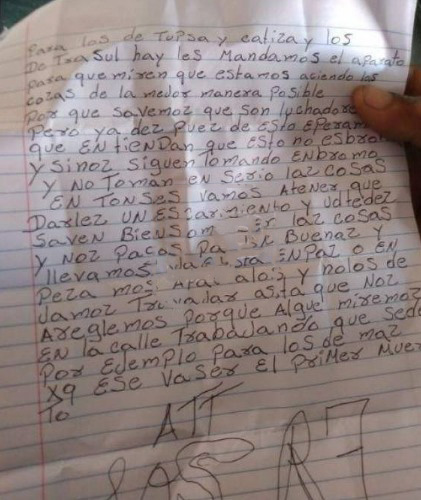 Para los de TUPSA y catiza y los
De TraSul hay les Mandamos el aparato
para que miren que estamos aciendo las
cozas de la mejor manera posible
Por que savemoz que son luchadore
Pero ya dez Puez de esto EPeram
que ENtienDan que esto no esbrom
y sinoz siguen tomando ENbroma
y No Toman en Serio laz cosas
EN TONSEZ vamos Atener que
Darlez UN EScarmiento y udtedez
Saven Bien laz cosas
y Noz Buenaz y
llevamos ENPaz o EN
Peza mos alos y nolos de
Jamoz asta que Noz
Areglemos Porque Algui miremoz
EN la calle Trabajando que sede
Por EJemplo Para los de maz
xq ESE VaSER El PriMer Muer
To
ATT
LOS R7